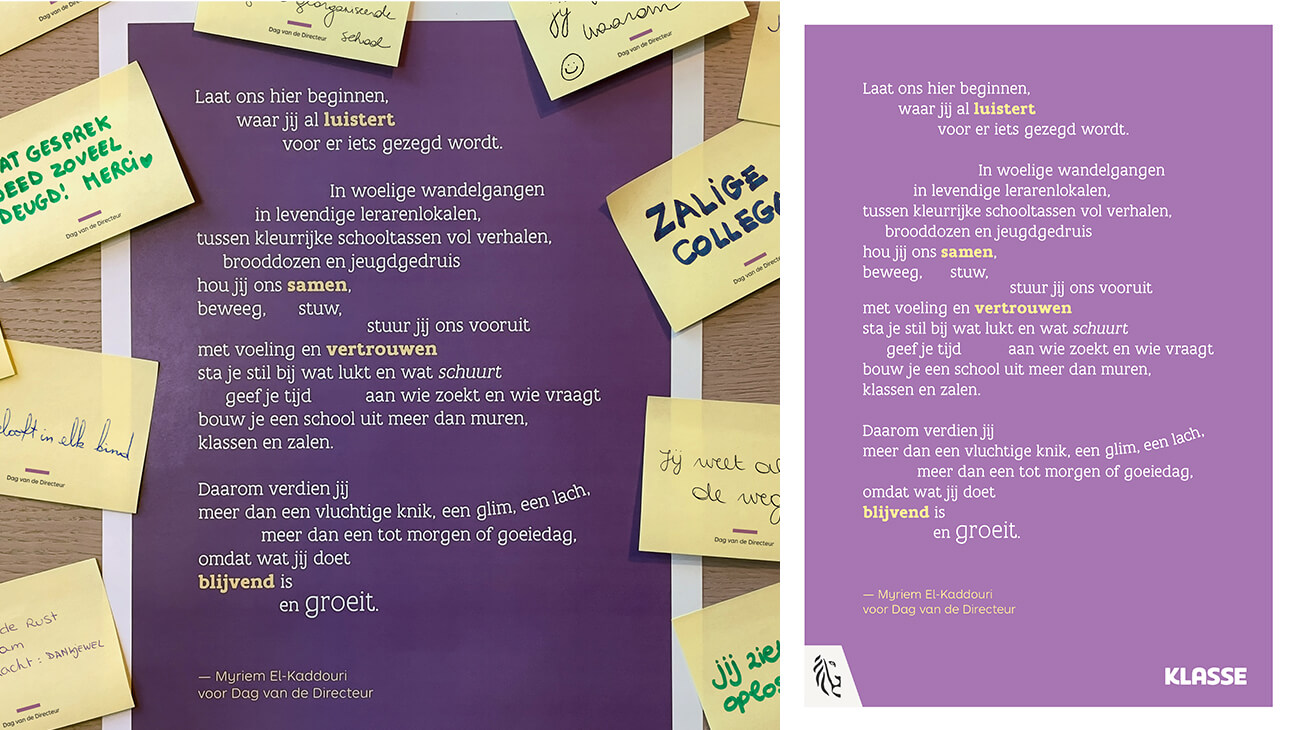 georganiseerde
school
Dag van de Directeur
Dag van de Directeur
jij
waarom
Dag van de Directeur
GESPREK
ZOVEEL
DEUGD! MERCI
Dag van de Directeur
ZALIGE
Dag van de Directeur
in elk kind
Dag van de Directeur
Jij weet
de weg
Dag van de Directeur
de RUST
DANKJEWEL
Dag van de Directeur
jij
Laat ons hier beginnen,
waar jij al luistert
voor er iets gezegd wordt.
In woelige wandelgangen
in levendige lerarenlokalen,
tussen kleurrijke schooltassen vol verhalen,
brooddozen en jeugdgedruis
hou jij ons samen,
beweeg, stuw,
stuur jij ons vooruit
met voeling en vertrouwen
sta je stil bij wat lukt en wat schuurt
geef je tijd aan wie zoekt en wie vraagt
bouw je een school uit meer dan muren,
klassen en zalen.
Daarom verdien jij
meer dan een vluchtige knik, een glim, een lach,
meer dan een tot morgen of goeiedag,
omdat wat jij doet
blijvend is
en groeit.
— Myriem El-Kaddouri
voor Dag van de Directeur
Laat ons hier beginnen,
waar jij al luistert
voor er iets gezegd wordt.
In woelige wandelgangen
in levendige lerarenlokalen,
tussen kleurrijke schooltassen vol verhalen,
brooddozen en jeugdgedruis
hou jij ons samen,
beweeg, stuw,
stuur jij ons vooruit
met voeling en vertrouwen
sta je stil bij wat lukt en wat schuurt
geef je tijd aan wie zoekt en wie vraagt
bouw je een school uit meer dan muren,
klassen en zalen.
Daarom verdien jij
meer dan een vluchtige knik, een glim, een lach,
meer dan een tot morgen of goeiedag,
omdat wat jij doet
blijvend is
en groeit.
— Myriem El-Kaddouri
voor Dag van de Directeur
KLASSE